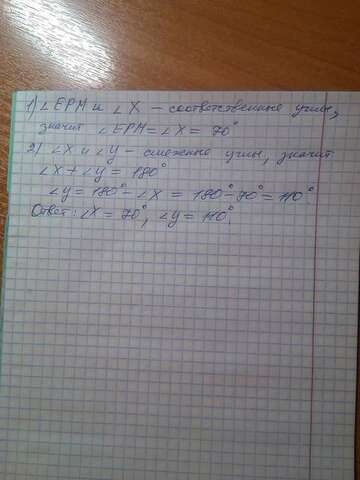 1) ∠EPM и ∠X – соответственные углы,
значит ∠EPM = ∠X = 70°
2) ∠X и ∠Y – смежные углы, значит
∠X + ∠Y = 180°
∠Y = 180° – ∠X = 180° – 70° = 110°
Ответ: ∠X = 70°, ∠Y = 110°.